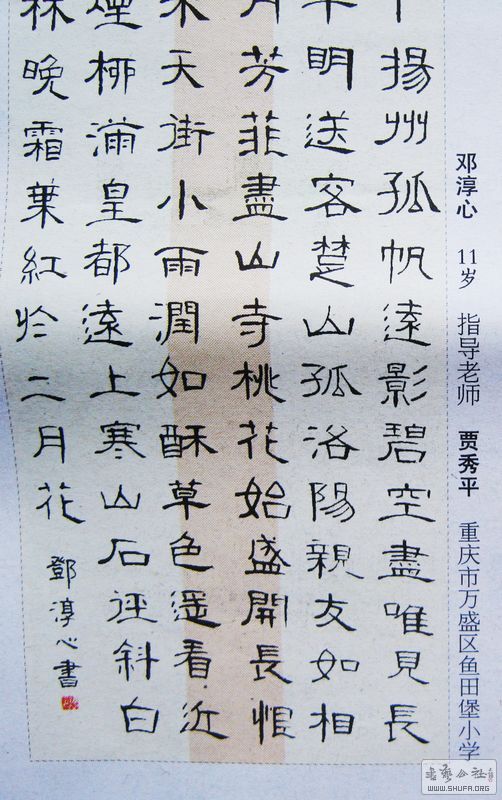 揚州孤帆遠影碧空盡唯見長
平明送客楚山孤洛陽親友如相
月芳菲盡山寺桃花始盛開長恨
來天街小雨潤如酥草色遥看近
煙柳滿皇都遠上寒山石徑斜白
林晚霜葉紅於二月花
鄧淳心書
邓淳心 11岁 指导老师 贾秀平 重庆市万盛区鱼田堡小学
書藝公社
WWW.SHUFA.ORG